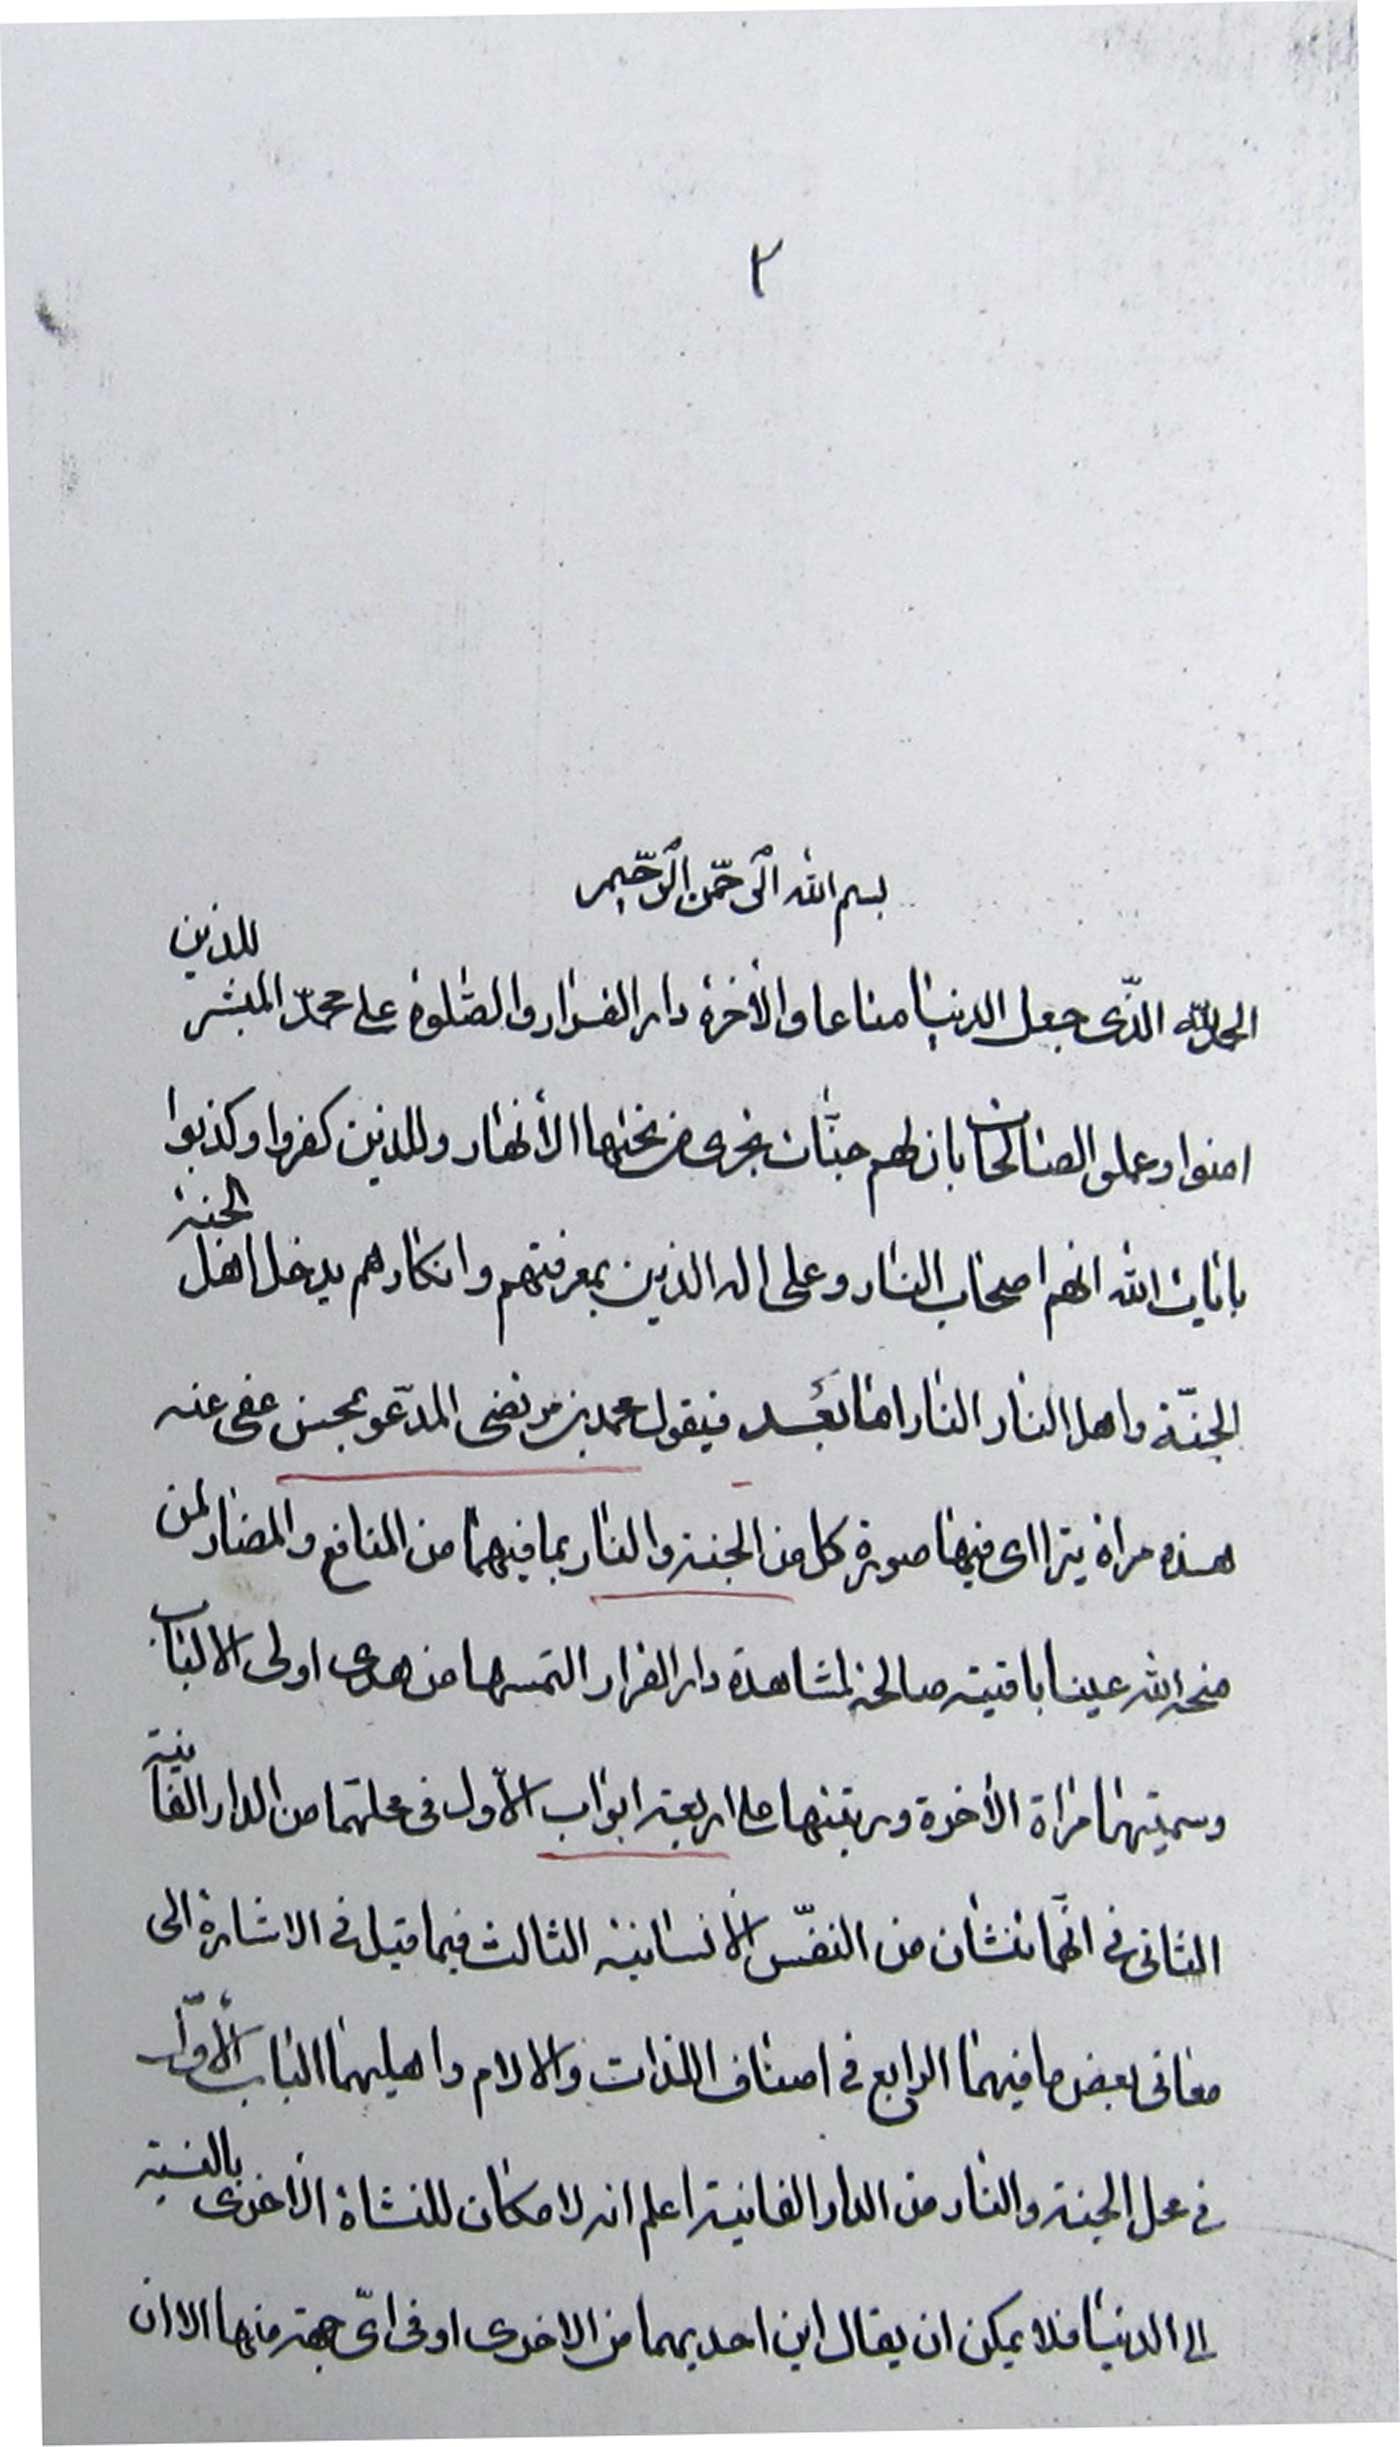 ٢
بسم الله الرحمن الرحيم
الحمد لله الذّى جعل الدنيا متاعا والآخرة دار القرار والصّلوة على محمّد المبشر للذين
امنوا وعملوا الصالحات بان لهم جنّات تجرى من تحتها الأنهار وللذين كفروا وكذبوا
باٰيات الله انهم اصحاب النار وعلى اله الذين بمعرفتهم وانكارهم يدخل اهل الجنة
الجنّة واهل النار النار اما بعد فيقول محمد بن مرتضى المدعّو بمحسن عفى عنه
هذه مراة يتراأى فيها صورة كل من الجنة والنار بما فيهما من المنافع والمضار لمن
منحه الله عينا باقية صالحة لمشاهدة دار القرار التمسها من هدى اولى الالباب
وسميتها مراة الآخرة ورتبتها على اربعة ابواب الأول فى محلتهما من الدار الفانية
الثانى فى انهما تنشأن من النفس الانسانية الثالث فيما قيل فى الاشارة الى
معانى بعض ما فيهما الرابع فى اصناف اللذات والالام واهليهما الباب الأوّل
فى محل الجنة والنار من الدار الفانية اعلم انه لا مكان للنشاة الأخرى بالنسبة
الى الدنيا فلا يمكن ان يقال اين احديهما من الاخرى او فى اىّ جهة منها الا ان